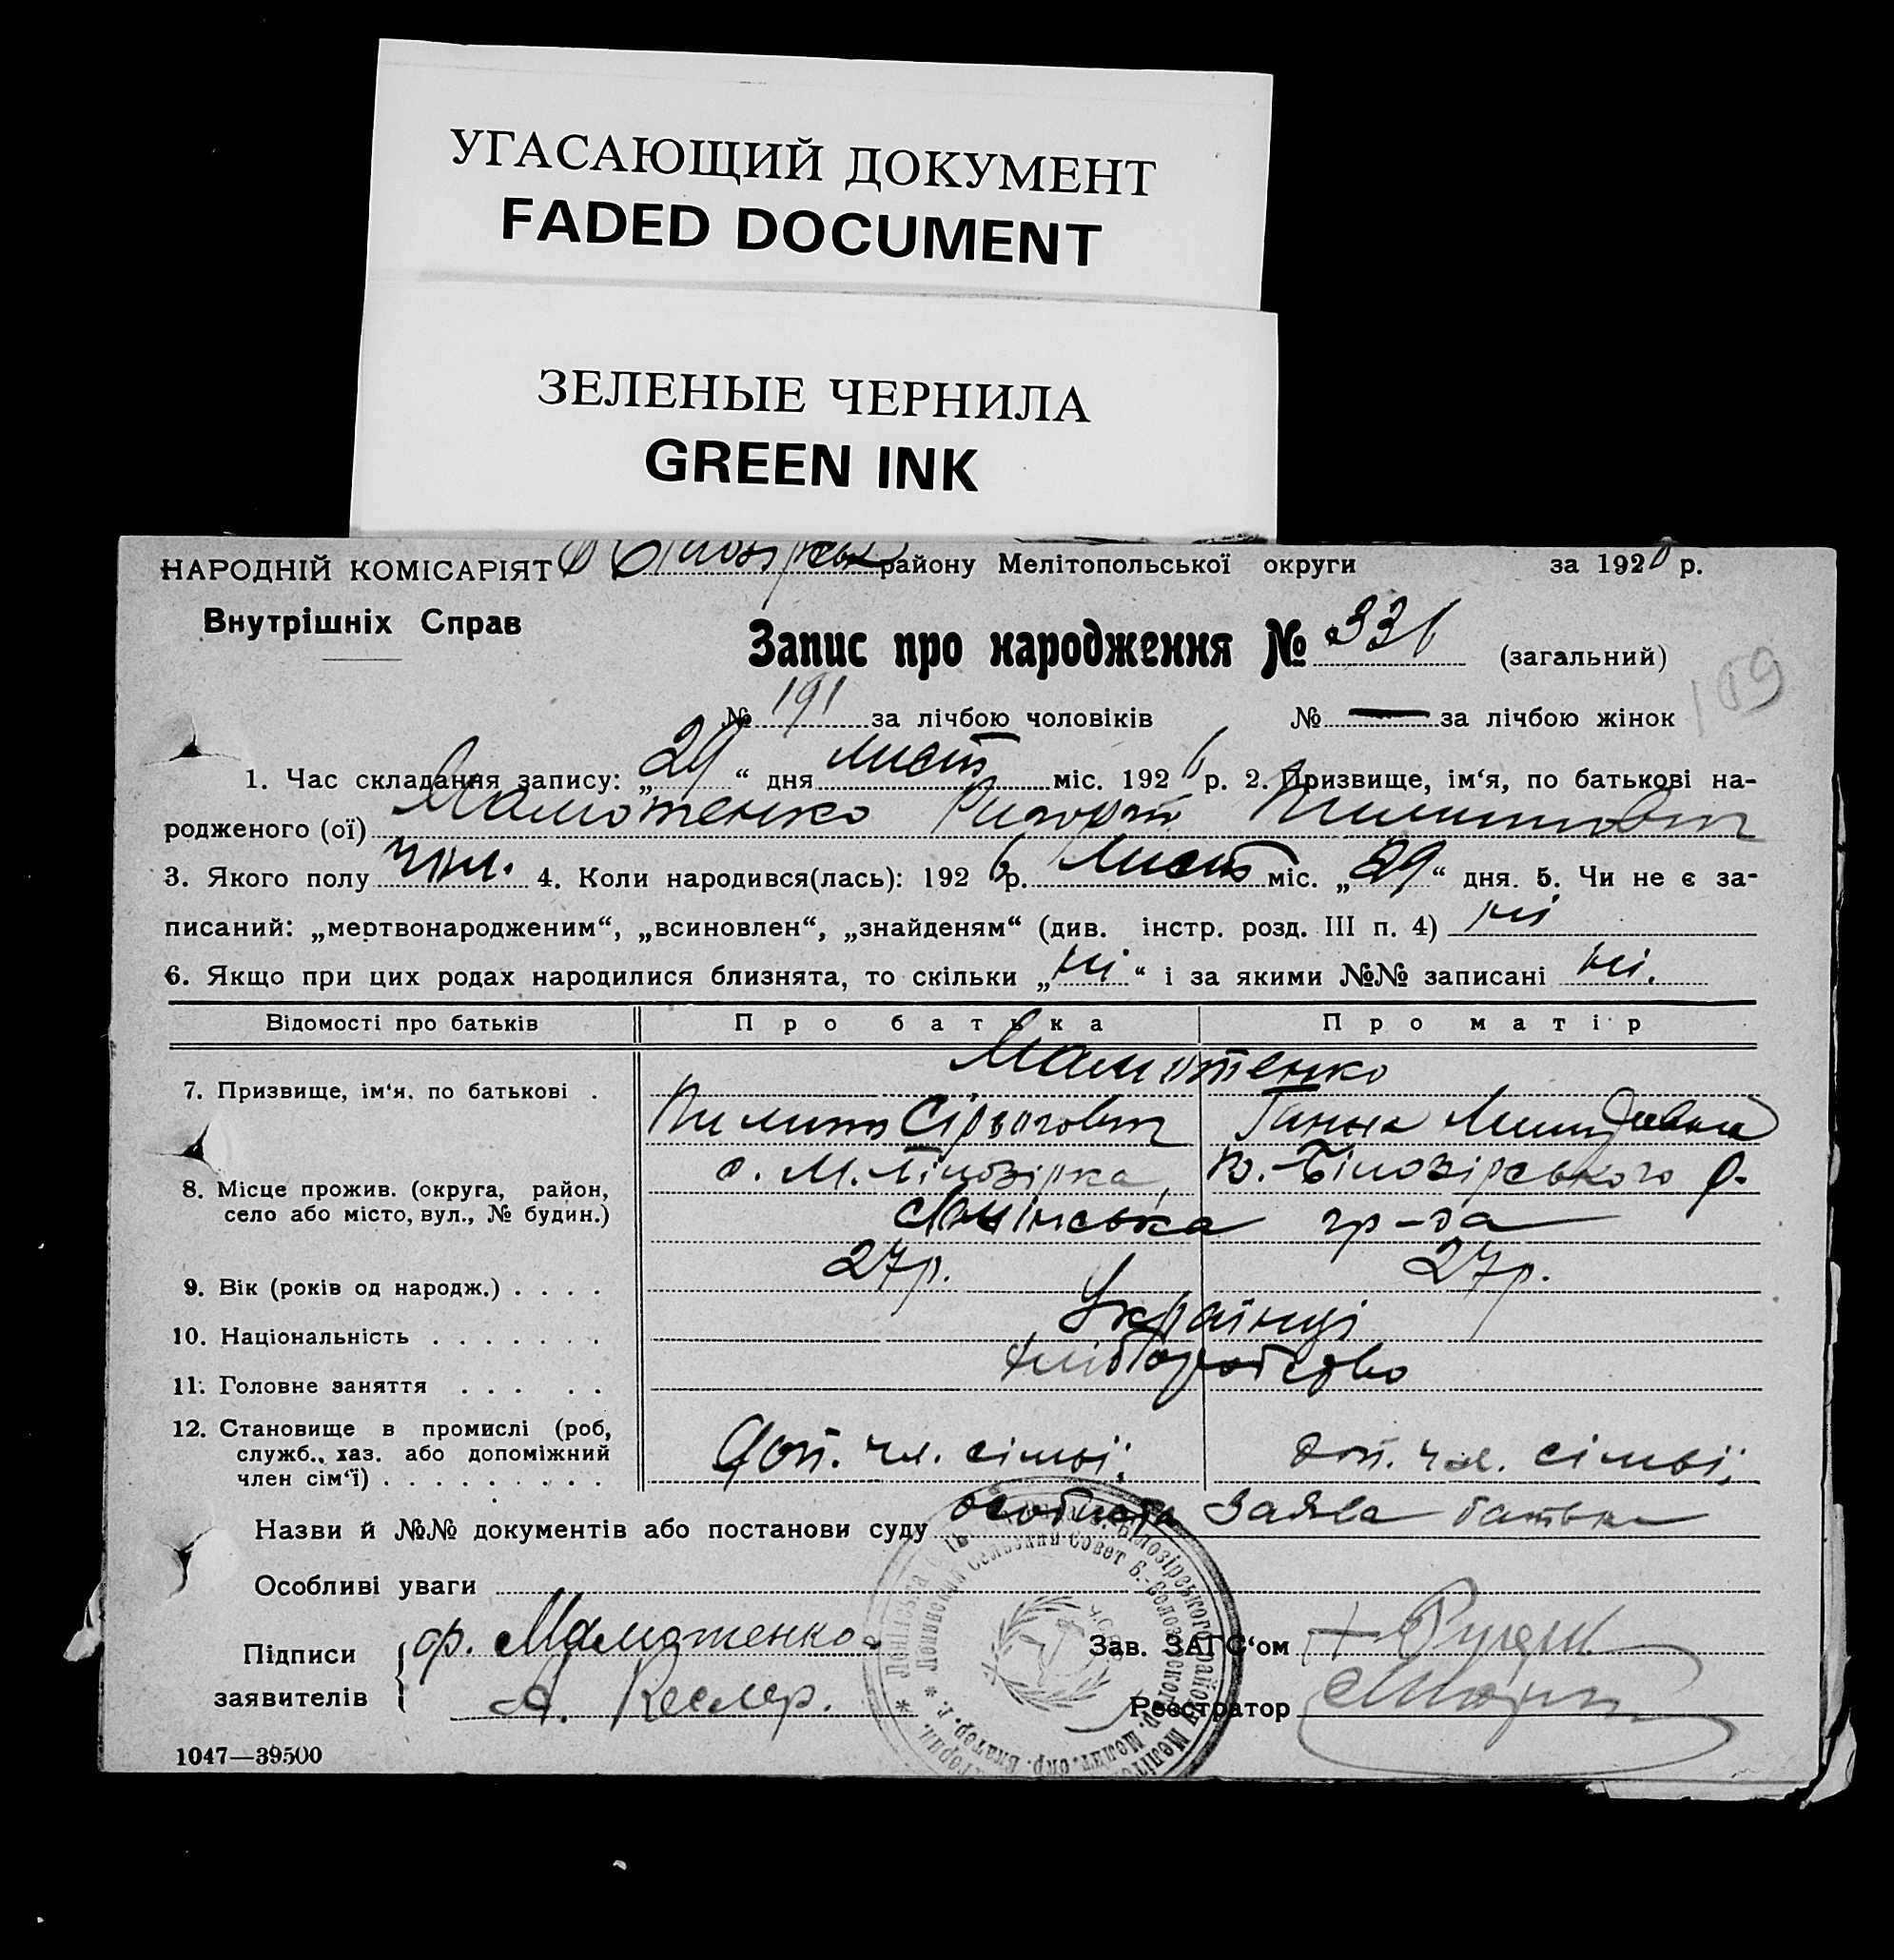 УГАСАЮЩИЙ ДОКУМЕНТ
FADED DOCUMENT
ЗЕЛЕНЫЕ ЧЕРНИЛА
GREEN INK
НАРОДНІЙ КОМІСАРІЯТ району Мелітопольської округи за 1926 р.
Внутрішніх Справ
Запис про народження № 336 (загальний)
109
№ 191 за лічбою чоловіків № — за лічбою жінок
1. Час складання запису: „29“ дня лист міс. 1926 р. 2. Призвище, ім‘я, по батькові на-
родженого (ої) Мамотенко Пилипович
3. Якого полу чол. 4. Коли народився(лась): 1926 р. лист міс. „29“ дня. 5. Чи не є за-
писаний: „мертвонародженим“, „всиновлен“, „знайденям“ (див. інстр. розд. III п. 4) ні
6. Якщо при цих родах народилися близнята, то скільки „ні“ і за якими №№ записані ні.
Відомості про батьків Про батька Про матір
Мамотенко
7. Призвище, ім‘я, по батькові .
Пилип Сірьогович Ганна
с. М. Білозірка, В.-Білозірського р.
8. Місце прожив. (округа, район,
село або місто, вул., № будин.)
гр-да
27р. 27р.
9. Вік (років од народж.) . . . .
Українці
10. Національність . . . . . . .
хліборобство
11. Головне заняття . . . . .
12. Становище в промислі (роб,
служб., хаз. або допоміжний
член сім‘ї) . . . . . . . . .
Доп. чл. сімьї; доп. чл. сімьї;
Назви й №№ документів або постанови суду особиста заява батька
Особливі уваги
Підписи
заявителів
ф. Мамотенко.
А. Кеслер.
Зав. ЗАГС‘ом
Реєстратор
1047—39500